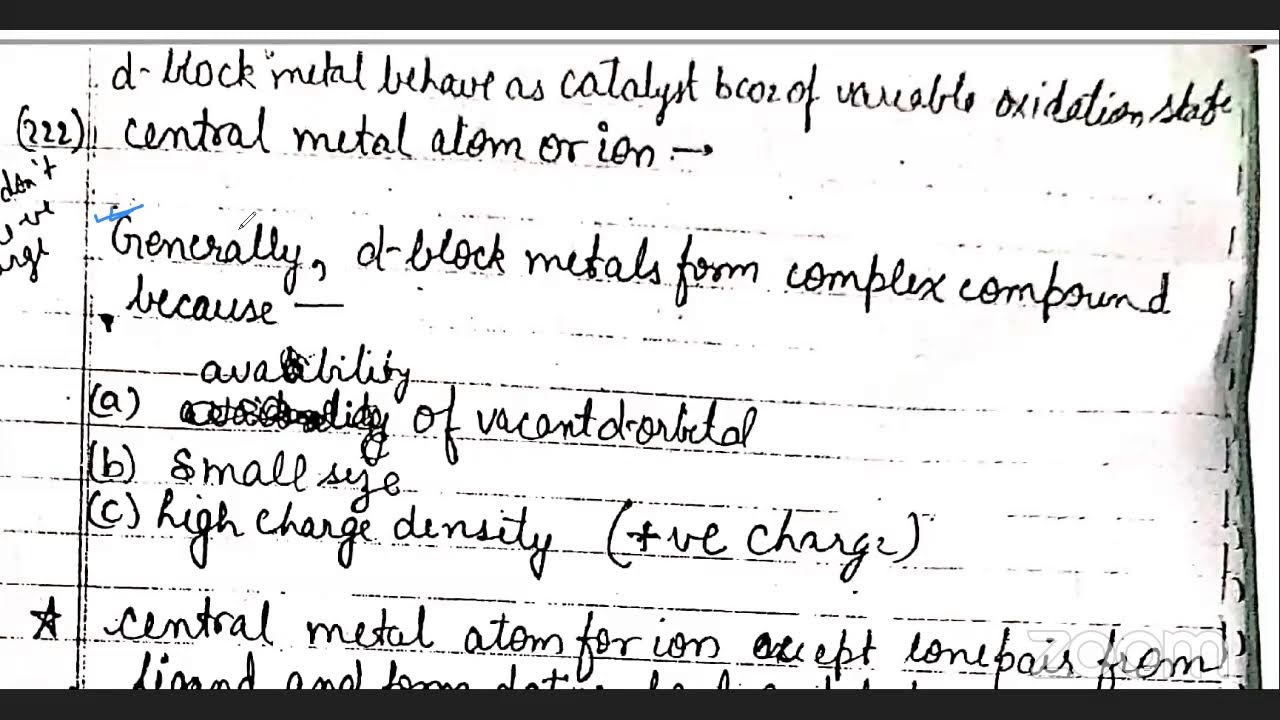 d-block metal behave as catalyst bcoz of variable oxidation state
(222) central metal atom or ion →
don't
ve
Generally, d-block metals form complex compound
because —
avability
(a) of vacant d-orbital
(b) small size
(c) high charge density (+ve charge)
☆ central metal atom for ion except lonepairs from
ligand and form
zoom